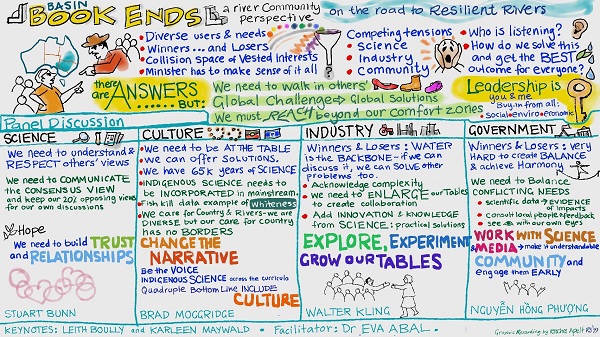 BASIN
BOOK ENDS
a river Community
perspective
on the road to Resilient Rivers
• Diverse users & needs
• Winners... and Losers
• Collision Space of Vested Interests
• Minister has to make sense of it all
Competing tensions
• Science
• Industry
• Community
• Who is listening?
• How do we solve this
and get the BEST
outcome for everyone?
there are ANSWERS
..... BUT:
We need to walk in others'
Global Challenge → Global Solutions
We must REACH beyond our comfort zones
Leadership is
you & me
• Buy in from all:
• Social • enviro • economic
Panel Discussion
SCIENCE
We need to understand &
RESPECT others' views
We need to COMMUNICATE
the CONSENSUS VIEW
and keep our 20% opposing views
for our own discussions
Hope
We need to build TRUST
and RELATIONSHIPS
STUART BUNN
CULTURE
• We need to be AT THE TABLE
• We can OFFER SOLUTIONS.
• We have 65K years of SCIENCE
• INDIGENOUS SCIENCE needs to
be INCORPORATED in mainstream
• Fish kill data example of Whiteness
• We care for Country & Rivers - we are
DIVERSE but our care for country
has no BORDERS
CHANGE THE
NARRATIVE
Be the VOICE
INDIGENOUS SCIENCE across the curricula
Quadruple Bottom Line INCLUDE
CULTURE
BRAD MOGGRIDGE
INDUSTRY
Winners & Losers: WATER
is the BACKBONE - if we can
discuss it, we can solve other
problems too.
• Acknowledge complexity
• We need to ENLARGE our Tables
to create collaboration
• Add INNOVATION & KNOWLEDGE
from SCIENCE: practical solutions
EXPLORE, EXPERIMENT
GROW OUR TABLES
WALTER KLING
GOVERNMENT
Winners & Losers: very
HARD to create BALANCE
& achieve Harmony
We need to Balance
CONFLICTING NEEDS
• Scientific data → EVIDENCE
of impacts
• Consult local people → feedback
• See with our own eyes
WORK WITH SCIENCE
& MEDIA → make it understandable
COMMUNITY and
engage them EARLY
NGUYỄN HỒNG PHƯỢNG
KEYNOTES: LEITH BOULLY and KARLEEN MAYWALD • Facilitator: Dr EVA ABAL.
Graphic Recording by Rachel Apelt